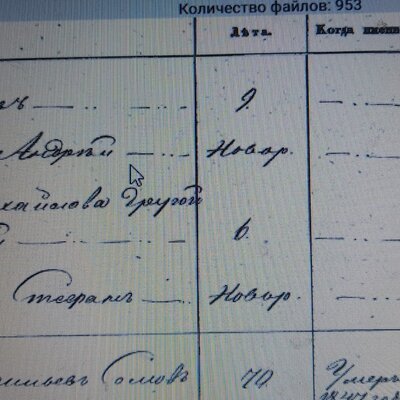 Количество файлов: 953
Лѣта. Когда именно
9.
Андрей Новор.
хайлова другой
6.
Степанъ Новор.
сильевъ Сомовъ 70 Умеръ
1847 год